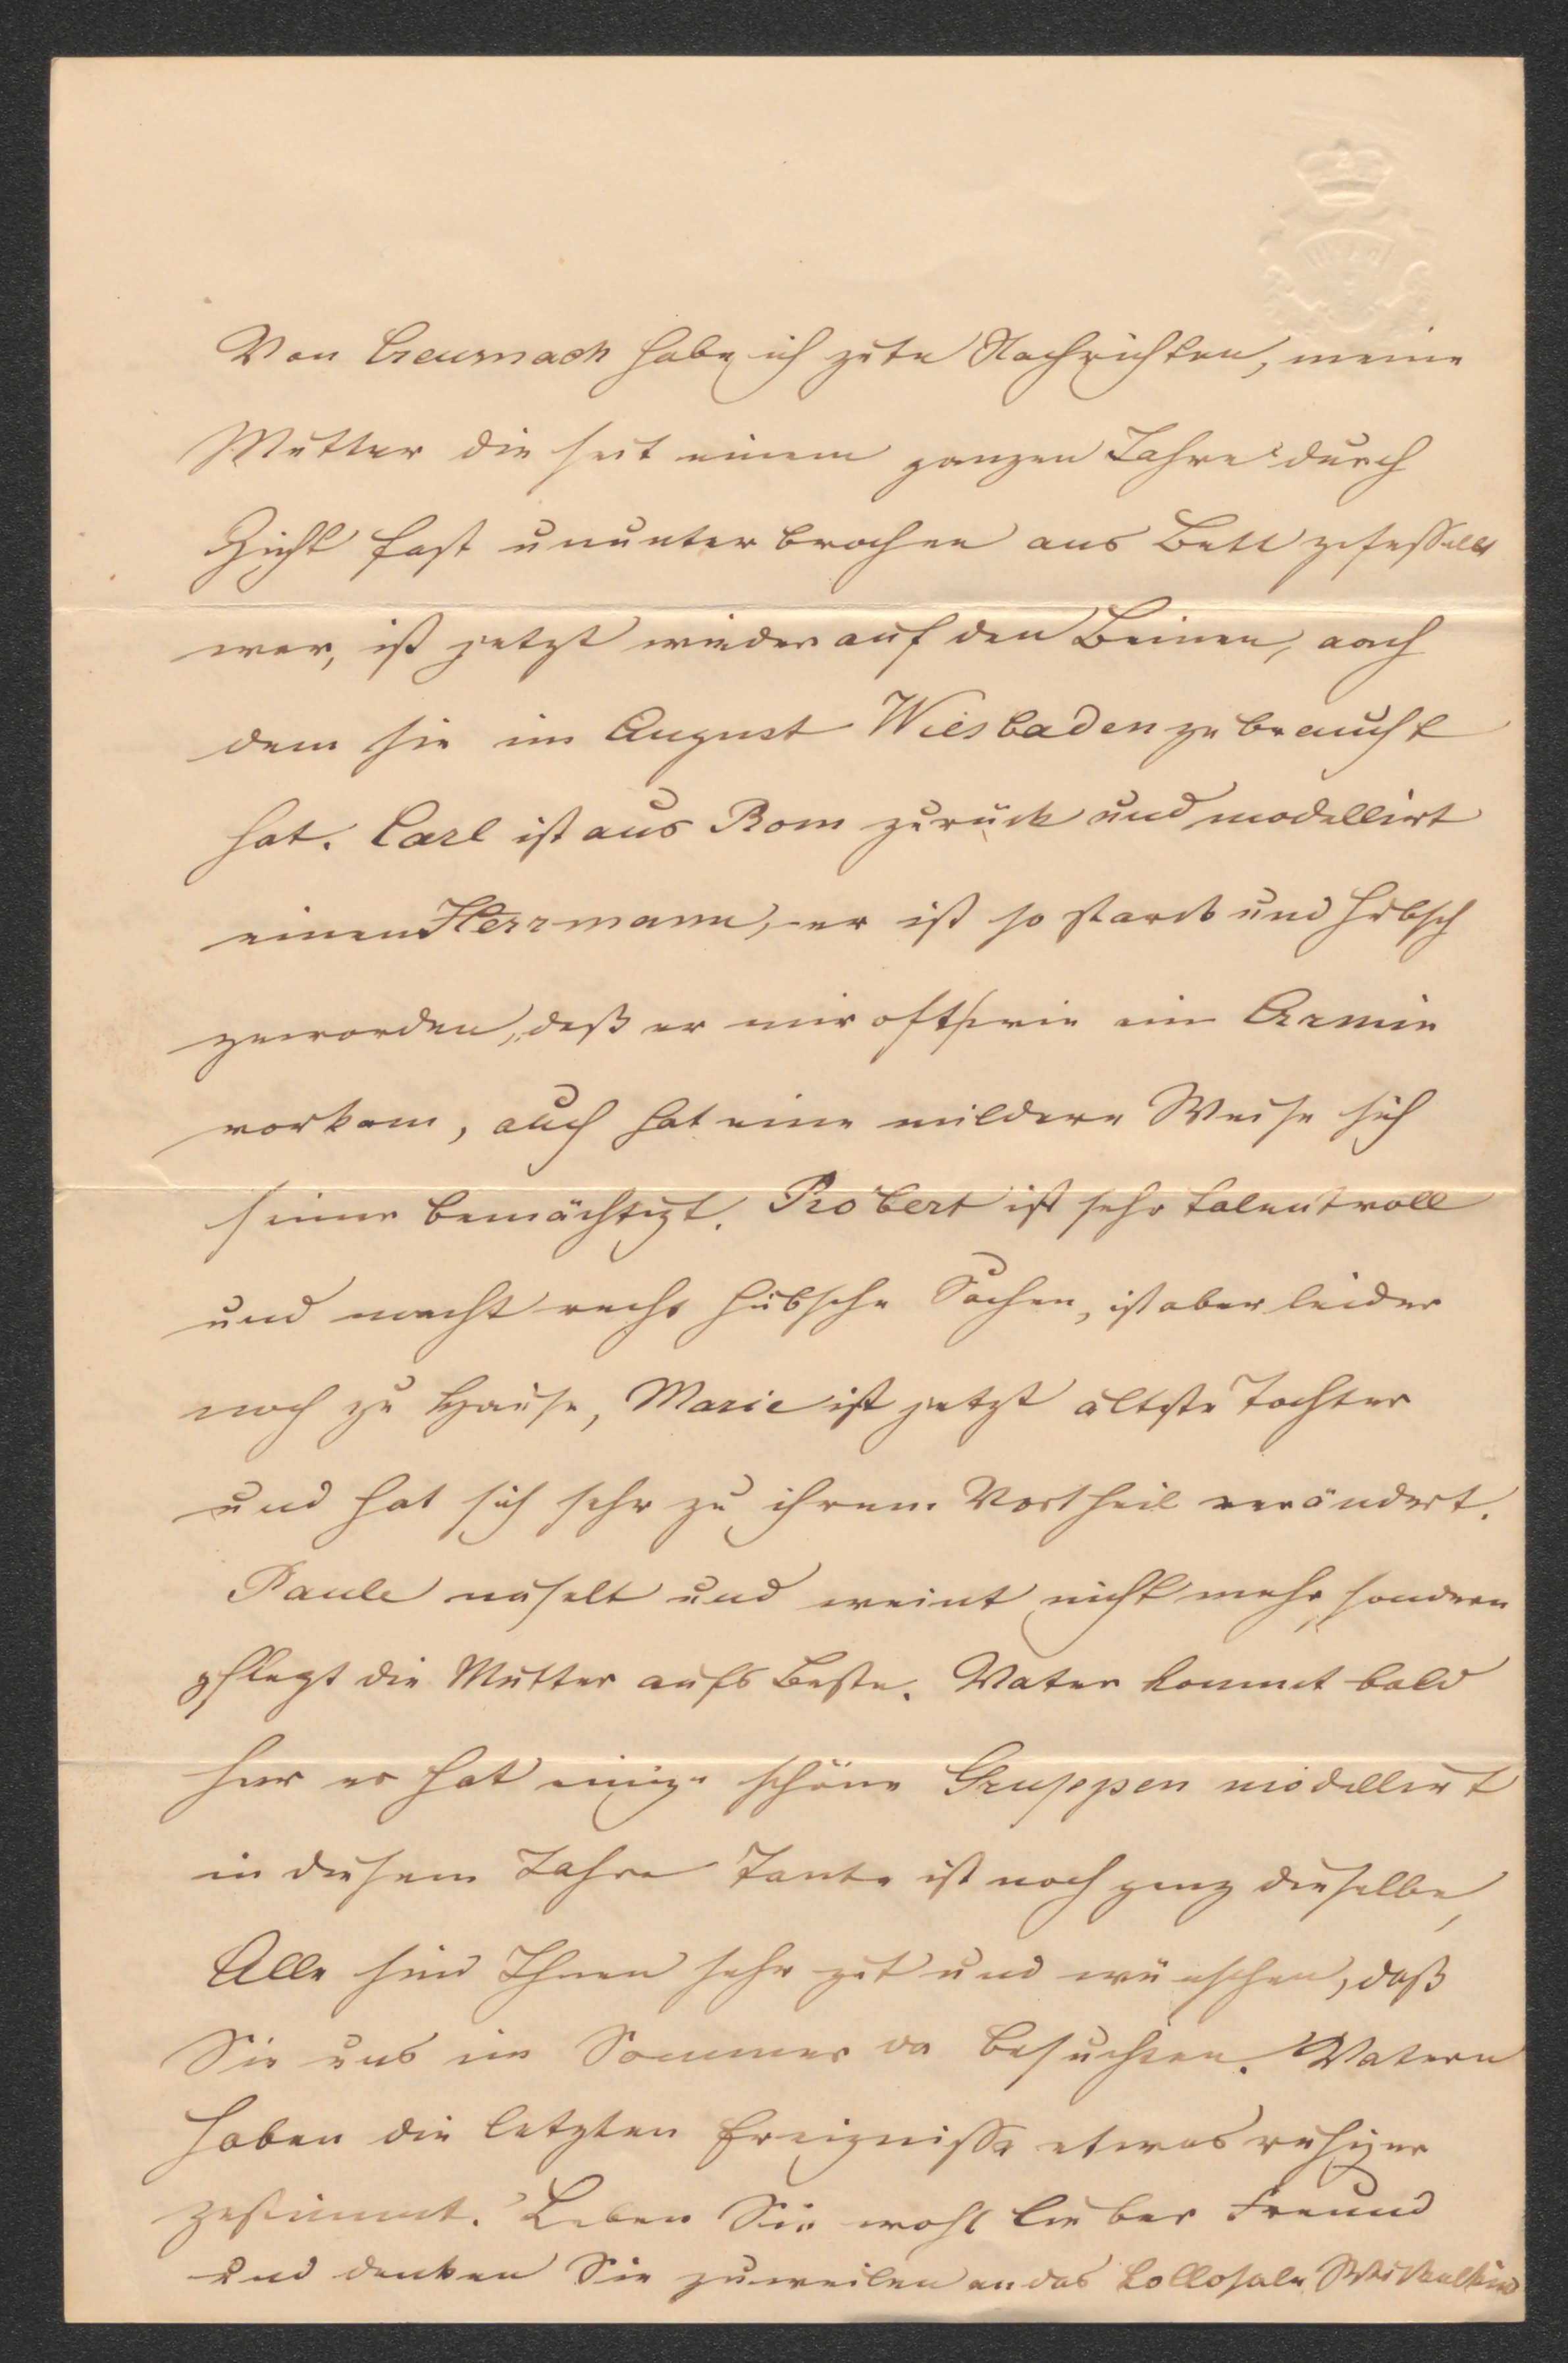 Von Creuznach habe ich gute Nachrichten, meine
Mutter die seit einem ganzen Jahre durch
Gicht fast ununterbrochen ans Bett gefesselt
war, ist jetzt wieder auf den Beinen, nach
dem sie im August Wiesbaden gebraucht
hat. Carl ist aus Rom zurück und modellirt
einen Herrmann, er ist so stark und hübsch
geworden, daß er mir oft wie ein Armin
vorkam, auch hat eine mildere Weise sich
seiner bemächtigt. Robert ist sehr talentvoll
und macht recht hübsche Sachen, ist aber leider
noch zu Hause, Marie ist jetzt älteste Tochter
und hat sich sehr zu ihrem Vortheil verändert.
Paule näselt und weint nicht mehr, sondern
pflegt die Mutter aufs Beste. Vater kommt bald
her er hat einige schöne Gruppen modellirt
in diesem Jahre Tante ist noch ganz dieselbe,
Alle sind Ihnen sehr gut und wünschen, daß
Sie uns im Sommer da besuchten. Vatern
haben die letzten Ereignisse etwas ruhiger
gestimmt. Leben Sie wohl lieber Freund
und denken Sie zuweilen an das kollosale